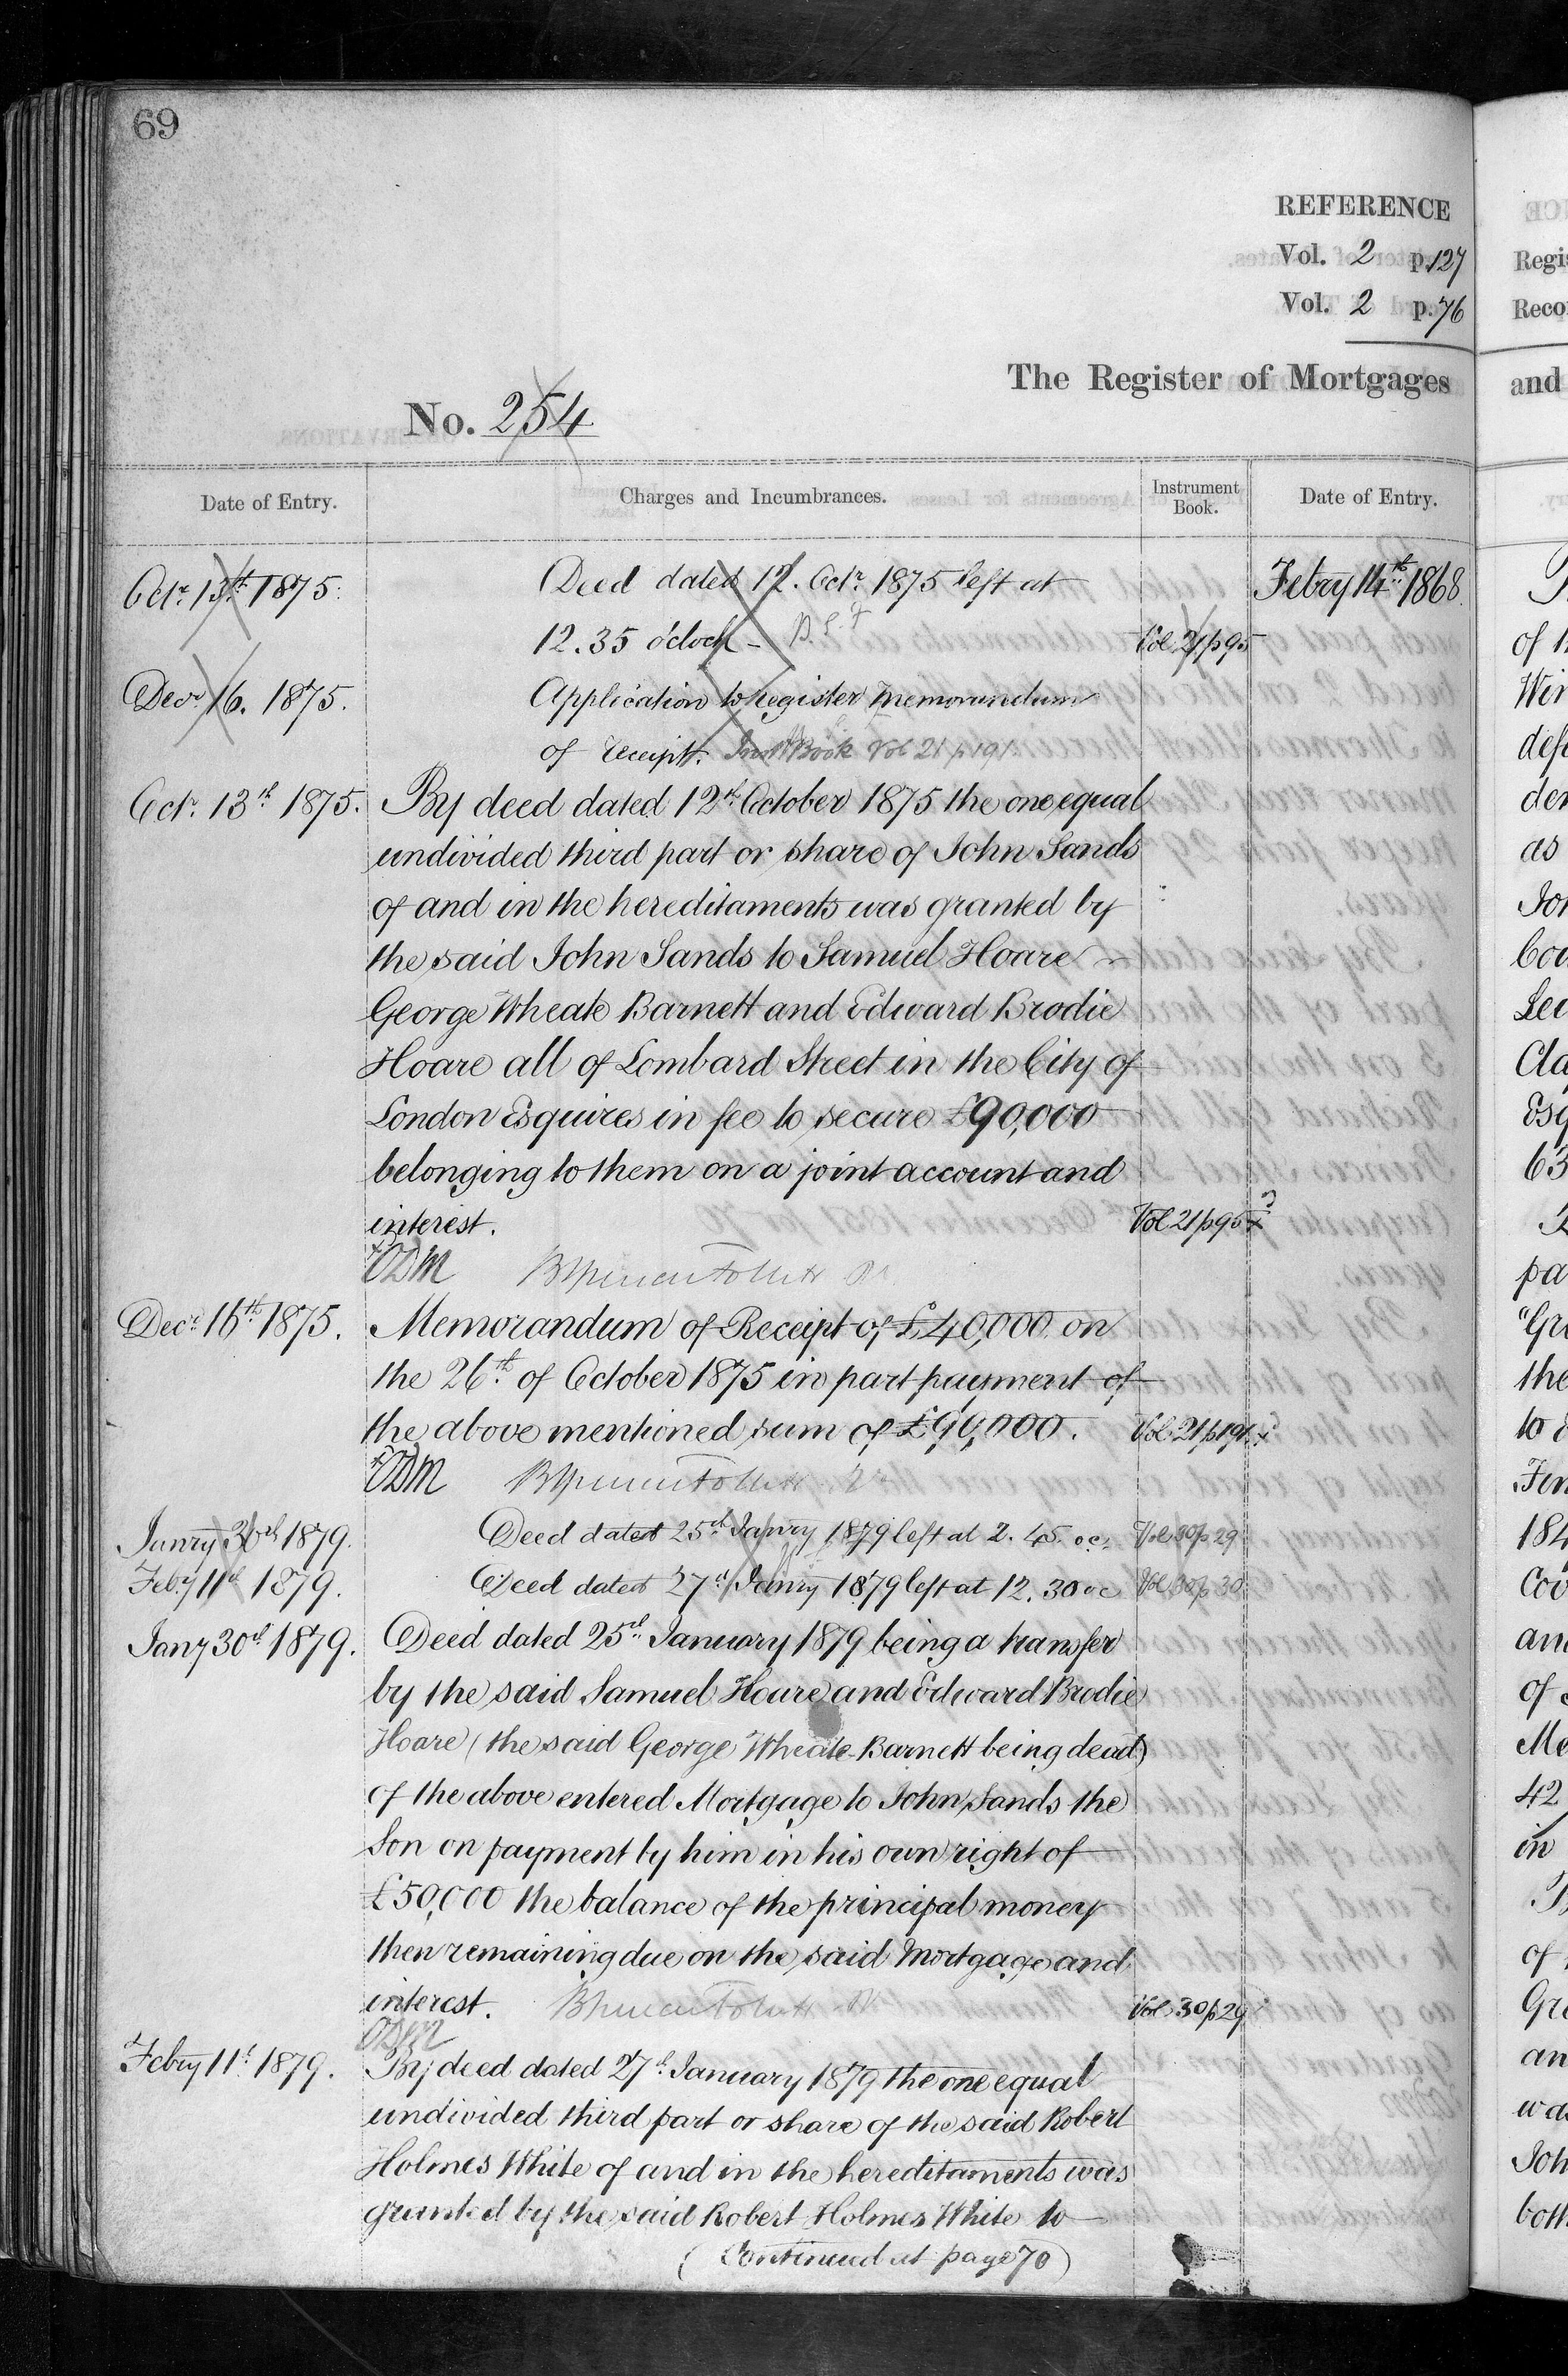 69
REFERENCE
Vol. 2 p. 127
Vol. 2 p. 76
The Register of Mortgages
No. 254
Date of Entry. Charges and Incumbrances. Instrument Book. Date of Entry.
Octr. 13th 1875. Deed dated 12. Octr. 1875 left at Febry 14th 1868.
12.35 o'clock - Vol. 21 p 95
Decr. 16. 1875. Application to register Memorandum
of receipt. Inst. Book Vol 21 p 191
Octr. 13th 1875. By deed dated 12th October 1875 the one equal
undivided third part or share of John Sands
of and in the hereditaments was granted by
the said John Sands to Samuel Hoare
George Wheate Barnett and Edward Brodie
Hoare all of Lombard Street in the City of
London Esquires in fee to secure £90,000
belonging to them on a joint account and
interest. Vol 21 p 95
ODM
Decr. 16th 1875. Memorandum of Receipt of £40,000 on
the 26th of October 1875 in part payment of
the above mentioned sum of £90,000. Vol. 21 p 191
ODM
Janry 30th 1879. Deed dated 25th Janry 1879 left at 2.45 oc. Vol. 30 p 29
Feby 11th 1879. Deed dated 27th Janry 1879 left at 12.30 oc Vol. 30 p 30
Jany 30th 1879. Deed dated 25th January 1879 being a transfer
by the said Samuel Hoare and Edward Brodie
Hoare (the said George Wheate Barnett being dead)
of the above entered Mortgage to John Sands the
Son on payment by him in his own right of
£50,000 the balance of the principal money
then remaining due on the said Mortgage and
interest. Vol. 30 p 29
ODM
Febry 11th 1879. By deed dated 27th January 1879 the one equal
undivided third part or share of the said Robert
Holmes White of and in the hereditaments was
granted by the said Robert Holmes White to
(Continued at page 70)